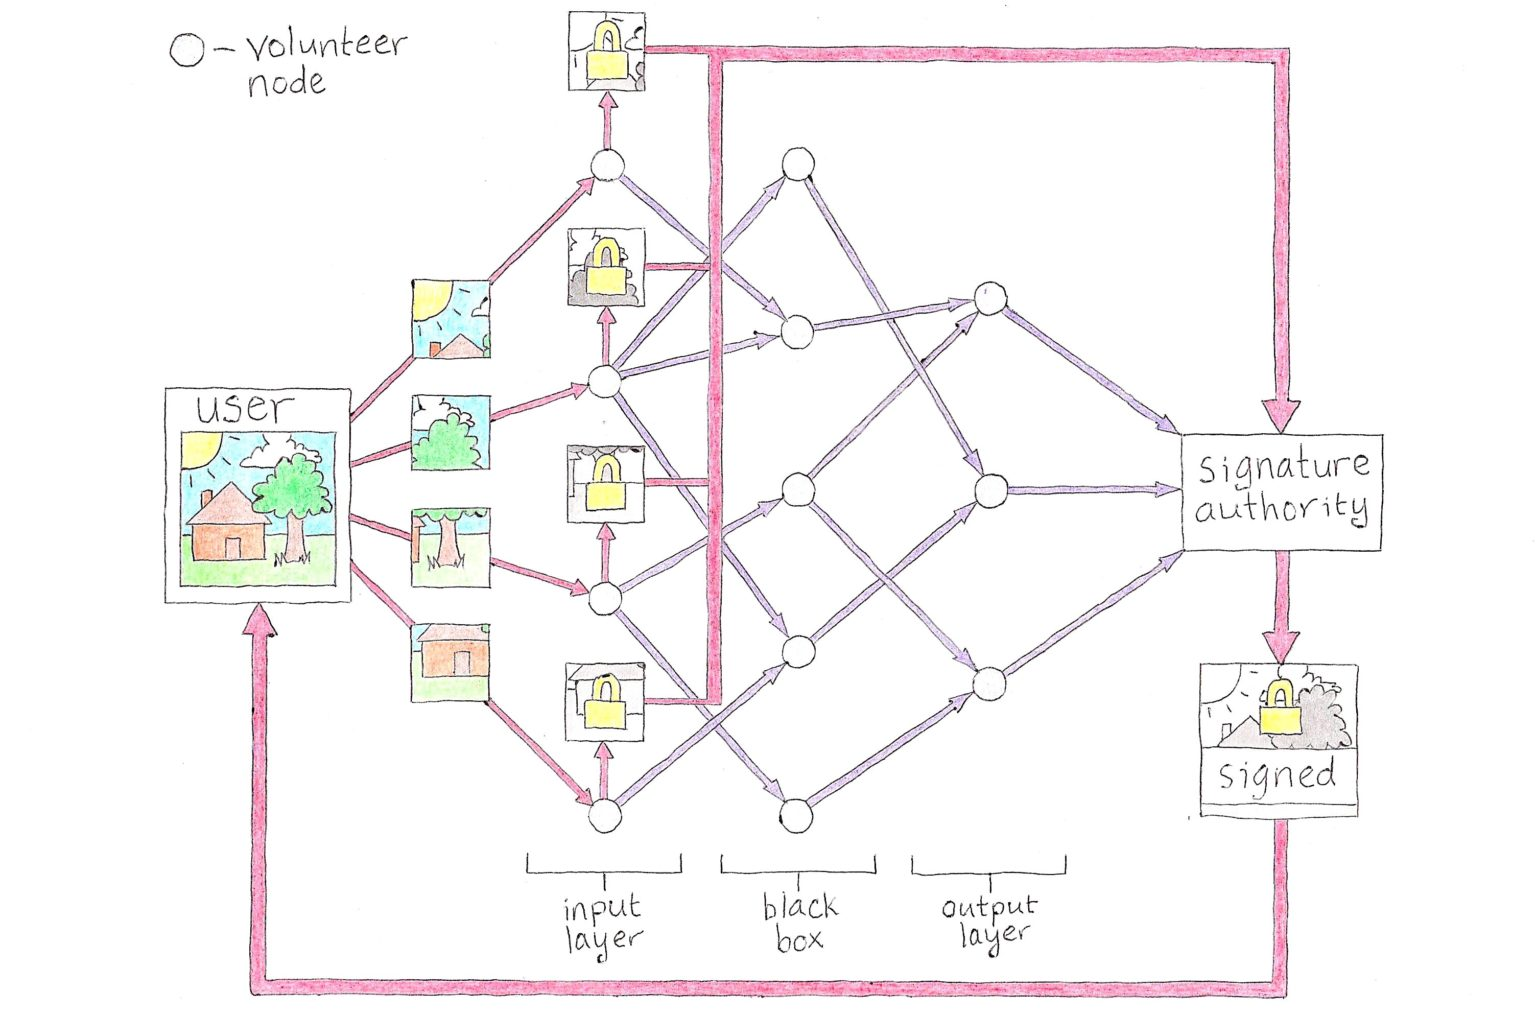 – volunteer
node
user
signature
authority
signed
input
layer
black
box
output
layer